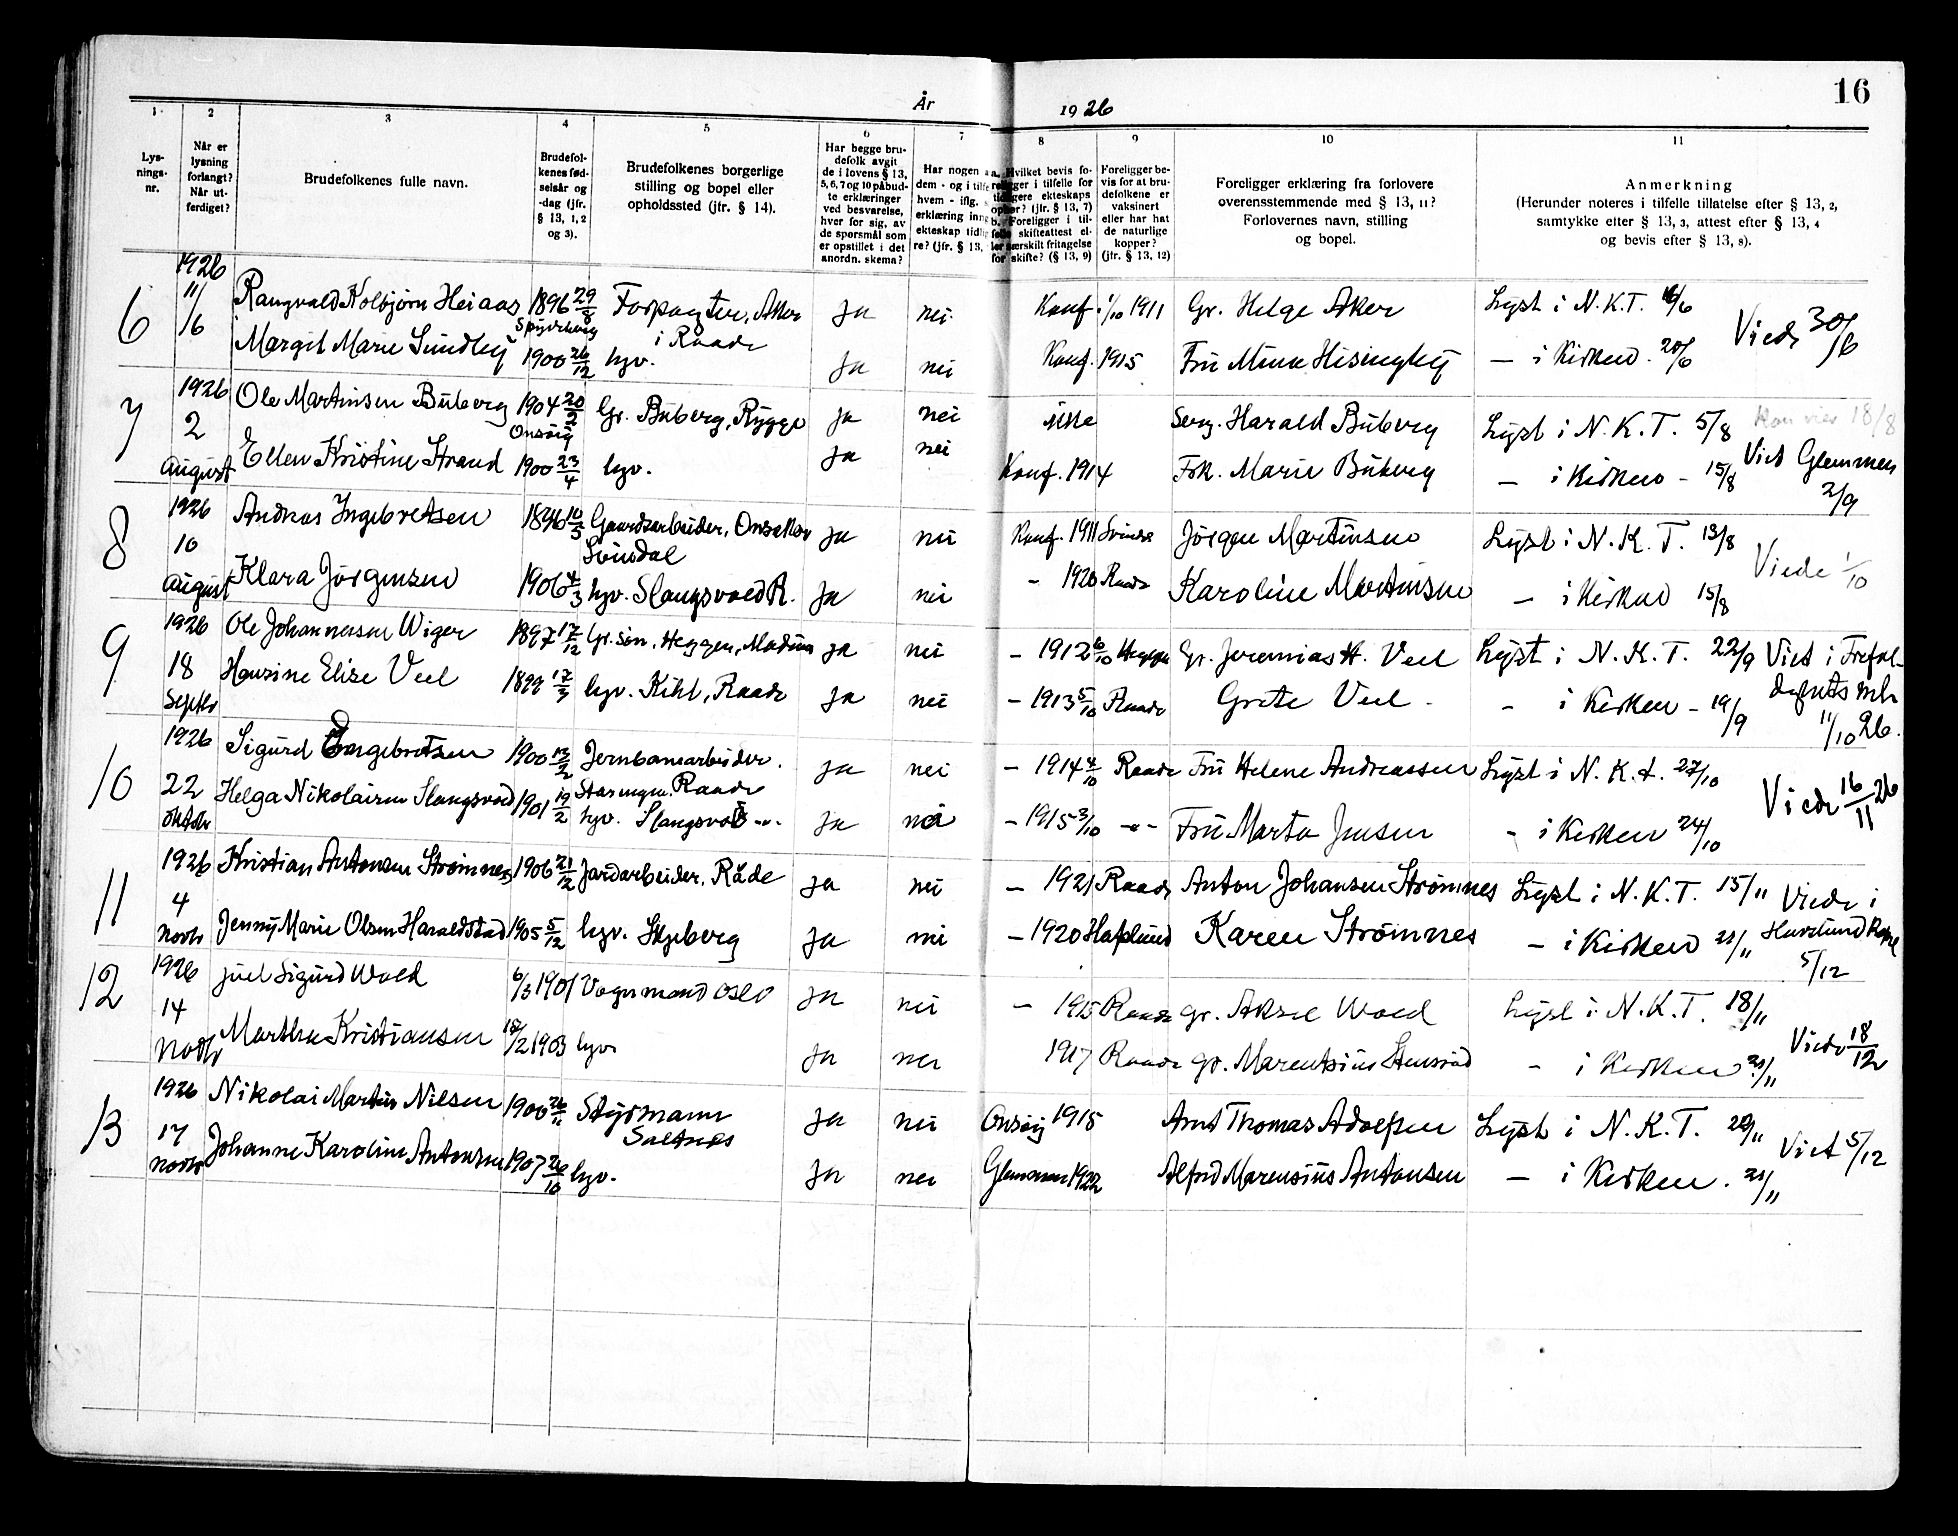 16
År 1926
1
2
3
4
5
6
7
8
9
10
11
Lys-
nings-
nr.
Når er
lysning
forlangt?
Når ut-
ferdiget?
Brudefolkenes fulle navn.
Brudefol-
kenes fød-
selsår og
-dag (jfr.
§ 13, 1, 2
og 3).
Brudefolkenes borgerlige
stilling og bopel eller
opholdssted (jfr. § 14).
Har begge bru-
defolk avgit
de i lovens § 13,
5, 6, 7 og 10 påbud-
te erklæringer
ved besvarelse,
hver for sig, av
de spørsmål som
er opstillet i det
anordn. skema?
Har nogen a
dem - og i tilfe
hvem - iflg. s
erklæring inng
ekteskap tidlig
re? (jfr. § 13,
a. Hvilket bevis fo-
religger i tilfelle for
tidligere ekteskaps
ophør? (jfr. § 13, 7)
b. Foreligger i til-
felle skifteattest el-
ler særskilt fritagelse
for skifte? (§ 13, 9)
Foreligger be-
vis for at bru-
defolkene er
vaksinert
eller har hat
de naturlige
kopper?
(jfr. § 13, 12)
Foreligger erklæring fra forlovere
overensstemmende med § 13, 11?
Forlovernes navn, stilling
og bopel.
Anmerkning
(Herunder noteres i tilfelle tillatelse efter § 13, 2,
samtykke efter § 13, 3, attest efter § 13, 4
og bevis efter § 13, 8).
6 1926 11/6 Rangvald Kolbjørn Heiaas 1896 29/8 Forpagter, Aker i Raade ja nei Konf. 1/10 1911 Gr. Helge Aker Lyst i N.K.T. 16/6 Viede 30/6
Margit Marie Sundby 1900 26/12 hjv. ja nei Konf. 1915 Fru Mina Hisingby — i Kirken 20/6
7 1926 2 August Ole Martinsen Buberg 1904 20/2 Onsøy Gr. Buberg, Rygge ja nei ikke Serg. Harald Buberg Lyst i N.K.T. 5/8 18/8
Ellen Kristine Strand 1900 23/4 hjv. ja nei Konf. 1914 Frk. Marie Buberg — i Kirken - 15/8 Viet Glemmen 2/9
8 1926 10 August Andreas Ingebretsen 1896 10/5 Gaardsarbeider, Onsaker Svindal ja nei Konf. 1911 Svindal Jørgen Martinsen Lyst i N.K.T. 13/8 Viede 1/10
Klara Jørgensen 1906 4/3 hjv. Slangsvold R. ja nei - 1920 Raade Karoline Martinsen — i Kirken 15/8
9 1926 18 Septbr Ole Johannesen Wiger 1897 17/12 Gr. søn, Heggen, Modum ja nei - 1912 6/10 Heggen Gr. Jeremias H. Veel Lyst i N.K.T. 22/9 Viet i Frefol-
Hansine Elise Veel 1899 17/3 hjv. Kihl, Raade ja nei - 1913 5/10 Raade Grete Veel - i Kirken - 19/9 11/10 26.
10 1926 22 Oktbr Sigurd Ingebretsen 1900 13/2 Jernbanearbeider. Raade ja nei - 1914 4/10 Raade Fru Helene Andreassen Lyst i N.K.t. 27/10 Viede 16/11 26
Helga Nikolaisen Slangsvold 1901 19/2 hjv. Slangsvold -"- ja nei - 1915 3/10 -"- Fru Marta Jensen - i Kirken 24/10
11 1926 4 Novbr Kristian Antonsen Strømnes 1906 21/12 Jordarbeider, Råde ja nei - 1921 Raade Anton Johansen Strømnes Lyst i N.K.T. 15/11 Viede i
Jenny Marie Olsen Haraldstad 1905 5/12 hjv. Skjeberg ja nei - 1920 Hafslund Karen Strømnes - i Kirken 21/11 Hafslund Kapel 5/12
12 1926 14 Novbr Juel Sigurd Wold 6/3 1901 Vognmand Oslo ja nei - 1915 Raade gr. Aksel Wold Lyst i N.K.T. 18/11 Viede 18/12
Martha Kristiansen 18/2 1903 hjv. ja nei 1917 Raade gr. Marentsius Stensrød - i Kirken 21/11
13 1926 17 Novbr Nikolai Martin Nilsen 1900 26/11 Styrmann Saltnes ja nei Onsøy 1915 Arnt Thomas Adolfsen Lyst i N.K.T. 20/11 Viet 5/12
Johanne Karoline Antonsen 1907 20/10 hjv. ja nei Glemmen 1922 Alfred Marensius Antonsen — i Kirken. 21/11